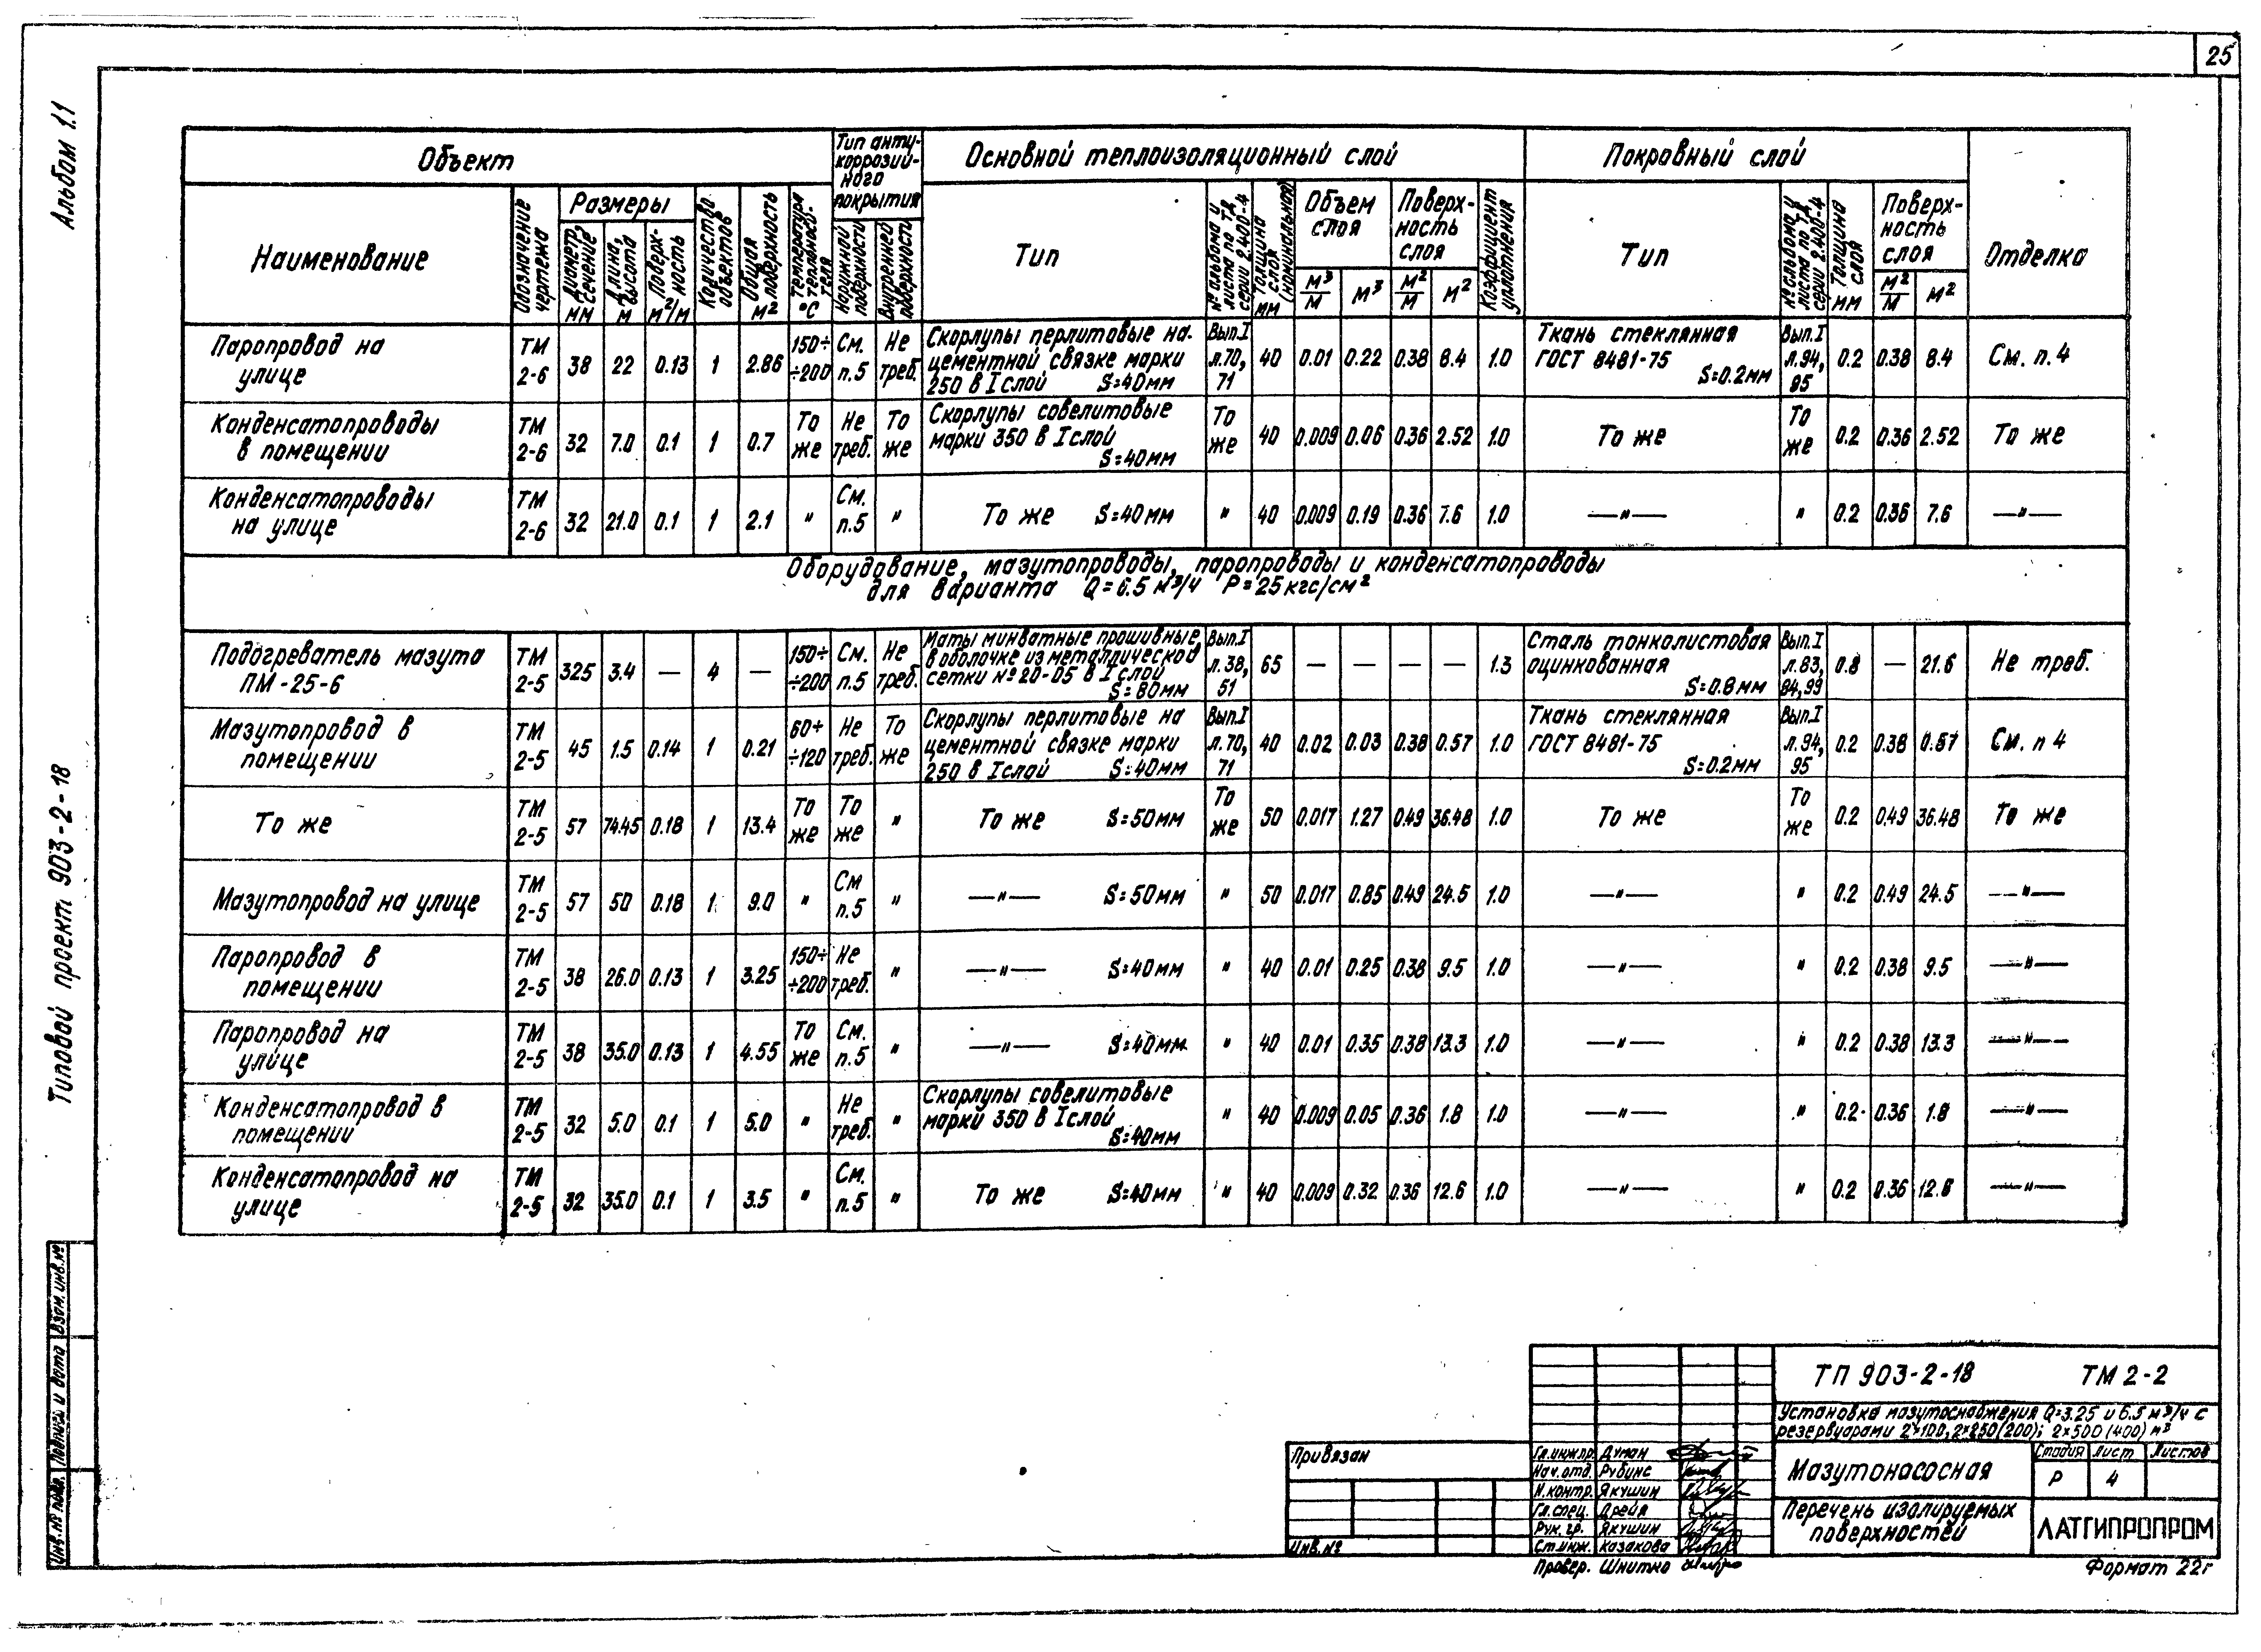 25
Альбом 1.1
Типовой проект 903-2-18
Объект
Тип анти-
коррозий-
ного
покрытия
Основной теплоизоляционный слой
Покровный слой
Отделка
Наименование
Обозначение чертежа
Размеры
Диаметр, сечение мм
Длина, высота м
Поверх-ность м²/м
Количество объектов
Общая поверхность м²
Температура теплоноси-теля °С
Наружной поверхности
Внутренней поверхности
Тип
№ альбома и листа по ТД серии 2.400-4
Толщина слоя (номинальная) мм
Объем слоя
м³/м
м³
Поверх-ность слоя
м²/м
м²
Коэффициент уплотнения
Тип
№ альбома и листа по ТД серии 2.400-4
Толщина слоя мм
Поверх-ность слоя
м²/м
м²
Паропровод на улице ТМ 2-6 38 22 0.13 1 2.86 150÷ ÷200 См. п.5 Не треб. Скорлупы перлитовые на цементной связке марки 250 в I слой S=40мм Вып.I л.70, 71 40 0.01 0.22 0.38 8.4 1.0 Ткань стеклянная ГОСТ 8481-75 S=0.2мм Вып.I л.94, 95 0.2 0.38 8.4 См. п.4
Конденсатопроводы в помещении ТМ 2-6 32 7.0 0.1 1 0.7 То же Не треб. То же Скорлупы совелитовые марки 350 в I слой S=40мм То же 40 0.009 0.06 0.36 2.52 1.0 То же То же 0.2 0.36 2.52 То же
Конденсатопроводы на улице ТМ 2-6 32 21.0 0.1 1 2.1 " См. п.5 " То же S=40мм " 40 0.009 0.19 0.36 7.6 1.0 —"— " 0.2 0.36 7.6 —"—
Оборудование, мазутопроводы, паропроводы и конденсатопроводы
для варианта Q=6.5 м³/ч P=25кгс/см²
Подогреватель мазута ПМ-25-6 ТМ 2-5 325 3.4 — 4 — 150÷ ÷200 См. п.5 Не треб. Маты минватные прошивные в оболочке из металлической сетки №20-05 в I слой S=80мм Вып.I л.38, 51 65 — — — — 1.3 Сталь тонколистовая оцинкованная S=0.8мм Вып.I л.83, 84,99 0.8 — 21.6 Не треб.
Мазутопровод в помещении ТМ 2-5 45 1.5 0.14 1 0.21 60÷ ÷120 Не треб. То же Скорлупы перлитовые на цементной связке марки 250 в I слой S=40мм Вып.I л.70, 71 40 0.02 0.03 0.38 0.57 1.0 Ткань стеклянная ГОСТ 8481-75 S=0.2мм Вып.I л.94, 95 0.2 0.38 0.57 См. п 4
То же ТМ 2-5 57 74.45 0.18 1 13.4 То же То же " То же S=50мм То же 50 0.017 1.27 0.49 36.48 1.0 То же То же 0.2 0.49 36.48 То же
Мазутопровод на улице ТМ 2-5 57 50 0.18 1 9.0 " См п.5 " —"— S=50мм " 50 0.017 0.85 0.49 24.5 1.0 —"— " 0.2 0.49 24.5 —"—
Паропровод в помещении ТМ 2-5 38 26.0 0.13 1 3.25 150÷ ÷200 Не треб. " —"— S=40мм " 40 0.01 0.25 0.38 9.5 1.0 —"— " 0.2 0.38 9.5 —"—
Паропровод на улице ТМ 2-5 38 35.0 0.13 1 4.55 То же См. п.5 " —"— S=40мм " 40 0.01 0.35 0.38 13.3 1.0 —"— " 0.2 0.38 13.3 —"—
Конденсатопровод в помещении ТМ 2-5 32 5.0 0.1 1 5.0 " Не треб. " Скорлупы совелитовые марки 350 в I слой S=40мм " 40 0.009 0.05 0.36 1.8 1.0 —"— " 0.2 0.36 1.8 —"—
Конденсатопровод на улице ТМ 2-5 32 35.0 0.1 1 3.5 " См. п.5 " То же S=40мм " 40 0.009 0.32 0.36 12.6 1.0 —"— " 0.2 0.36 12.6 —"—
Взам. инв. №
Подпись и дата
Инв. № подл.
ТП 903-2-18 ТМ 2-2
Установка мазутоснабжения Q=3.25 и 6.5 м³/ч с
резервуарами 2×100, 2×250(200); 2×500(400) м³
Привязан
Инв. №
Гл.инж.пр. Думан
Нач.отд. Рубинс
Н.контр. Якушин
Гл.спец. Дрейя
Рук. гр. Якушин
Ст.инж. Казакова
Провер. Шнитко
Мазутонасосная
Стадия Лист Листов
Р 4
Перечень изолируемых
поверхностей
ЛАТГИПРОПРОМ
Формат 22г